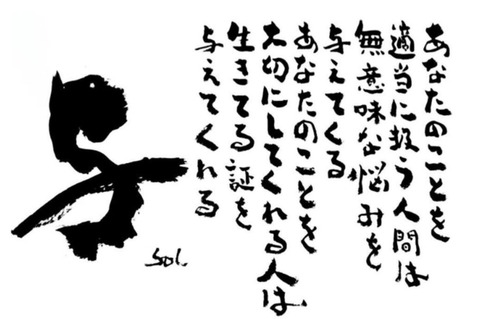 あなたのことを
適当に扱う人間は
無意味な悩みを
与えてくる
あなたのことを
大切にしてくれる人は
生きてる証を
与えてくれる
与
Sol.